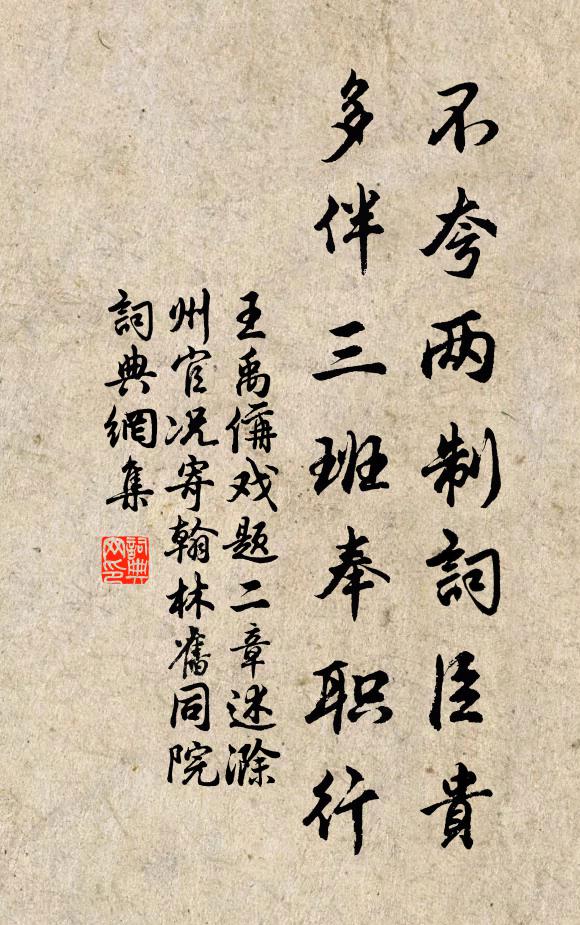 不夸两制詞臣貴
多伴三班奉职行
王禹偁戏题二章述滁
州官况寄翰林舊同院
詞典網集
詞典
网印